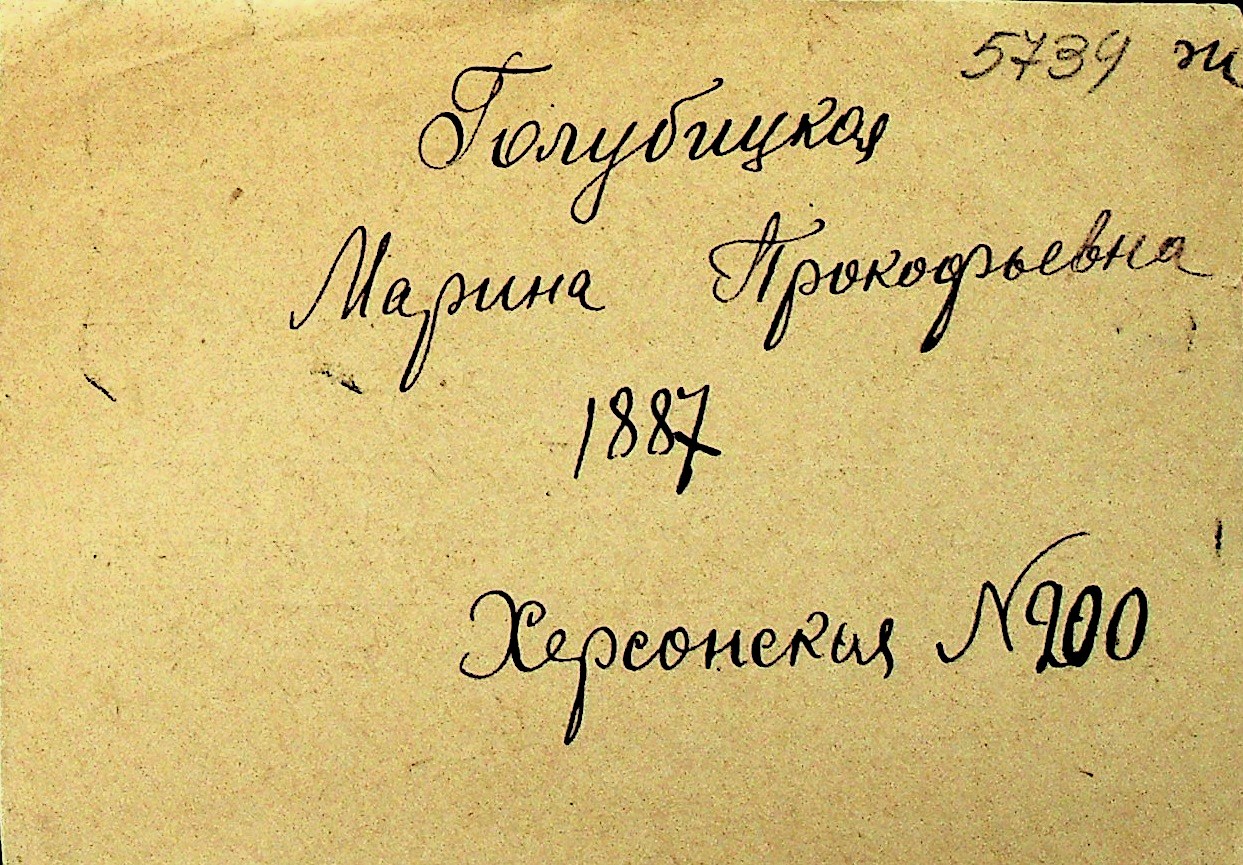 5739 ж
Голубицкая
Марина Прокофьевна
1887
Херсонская N 200